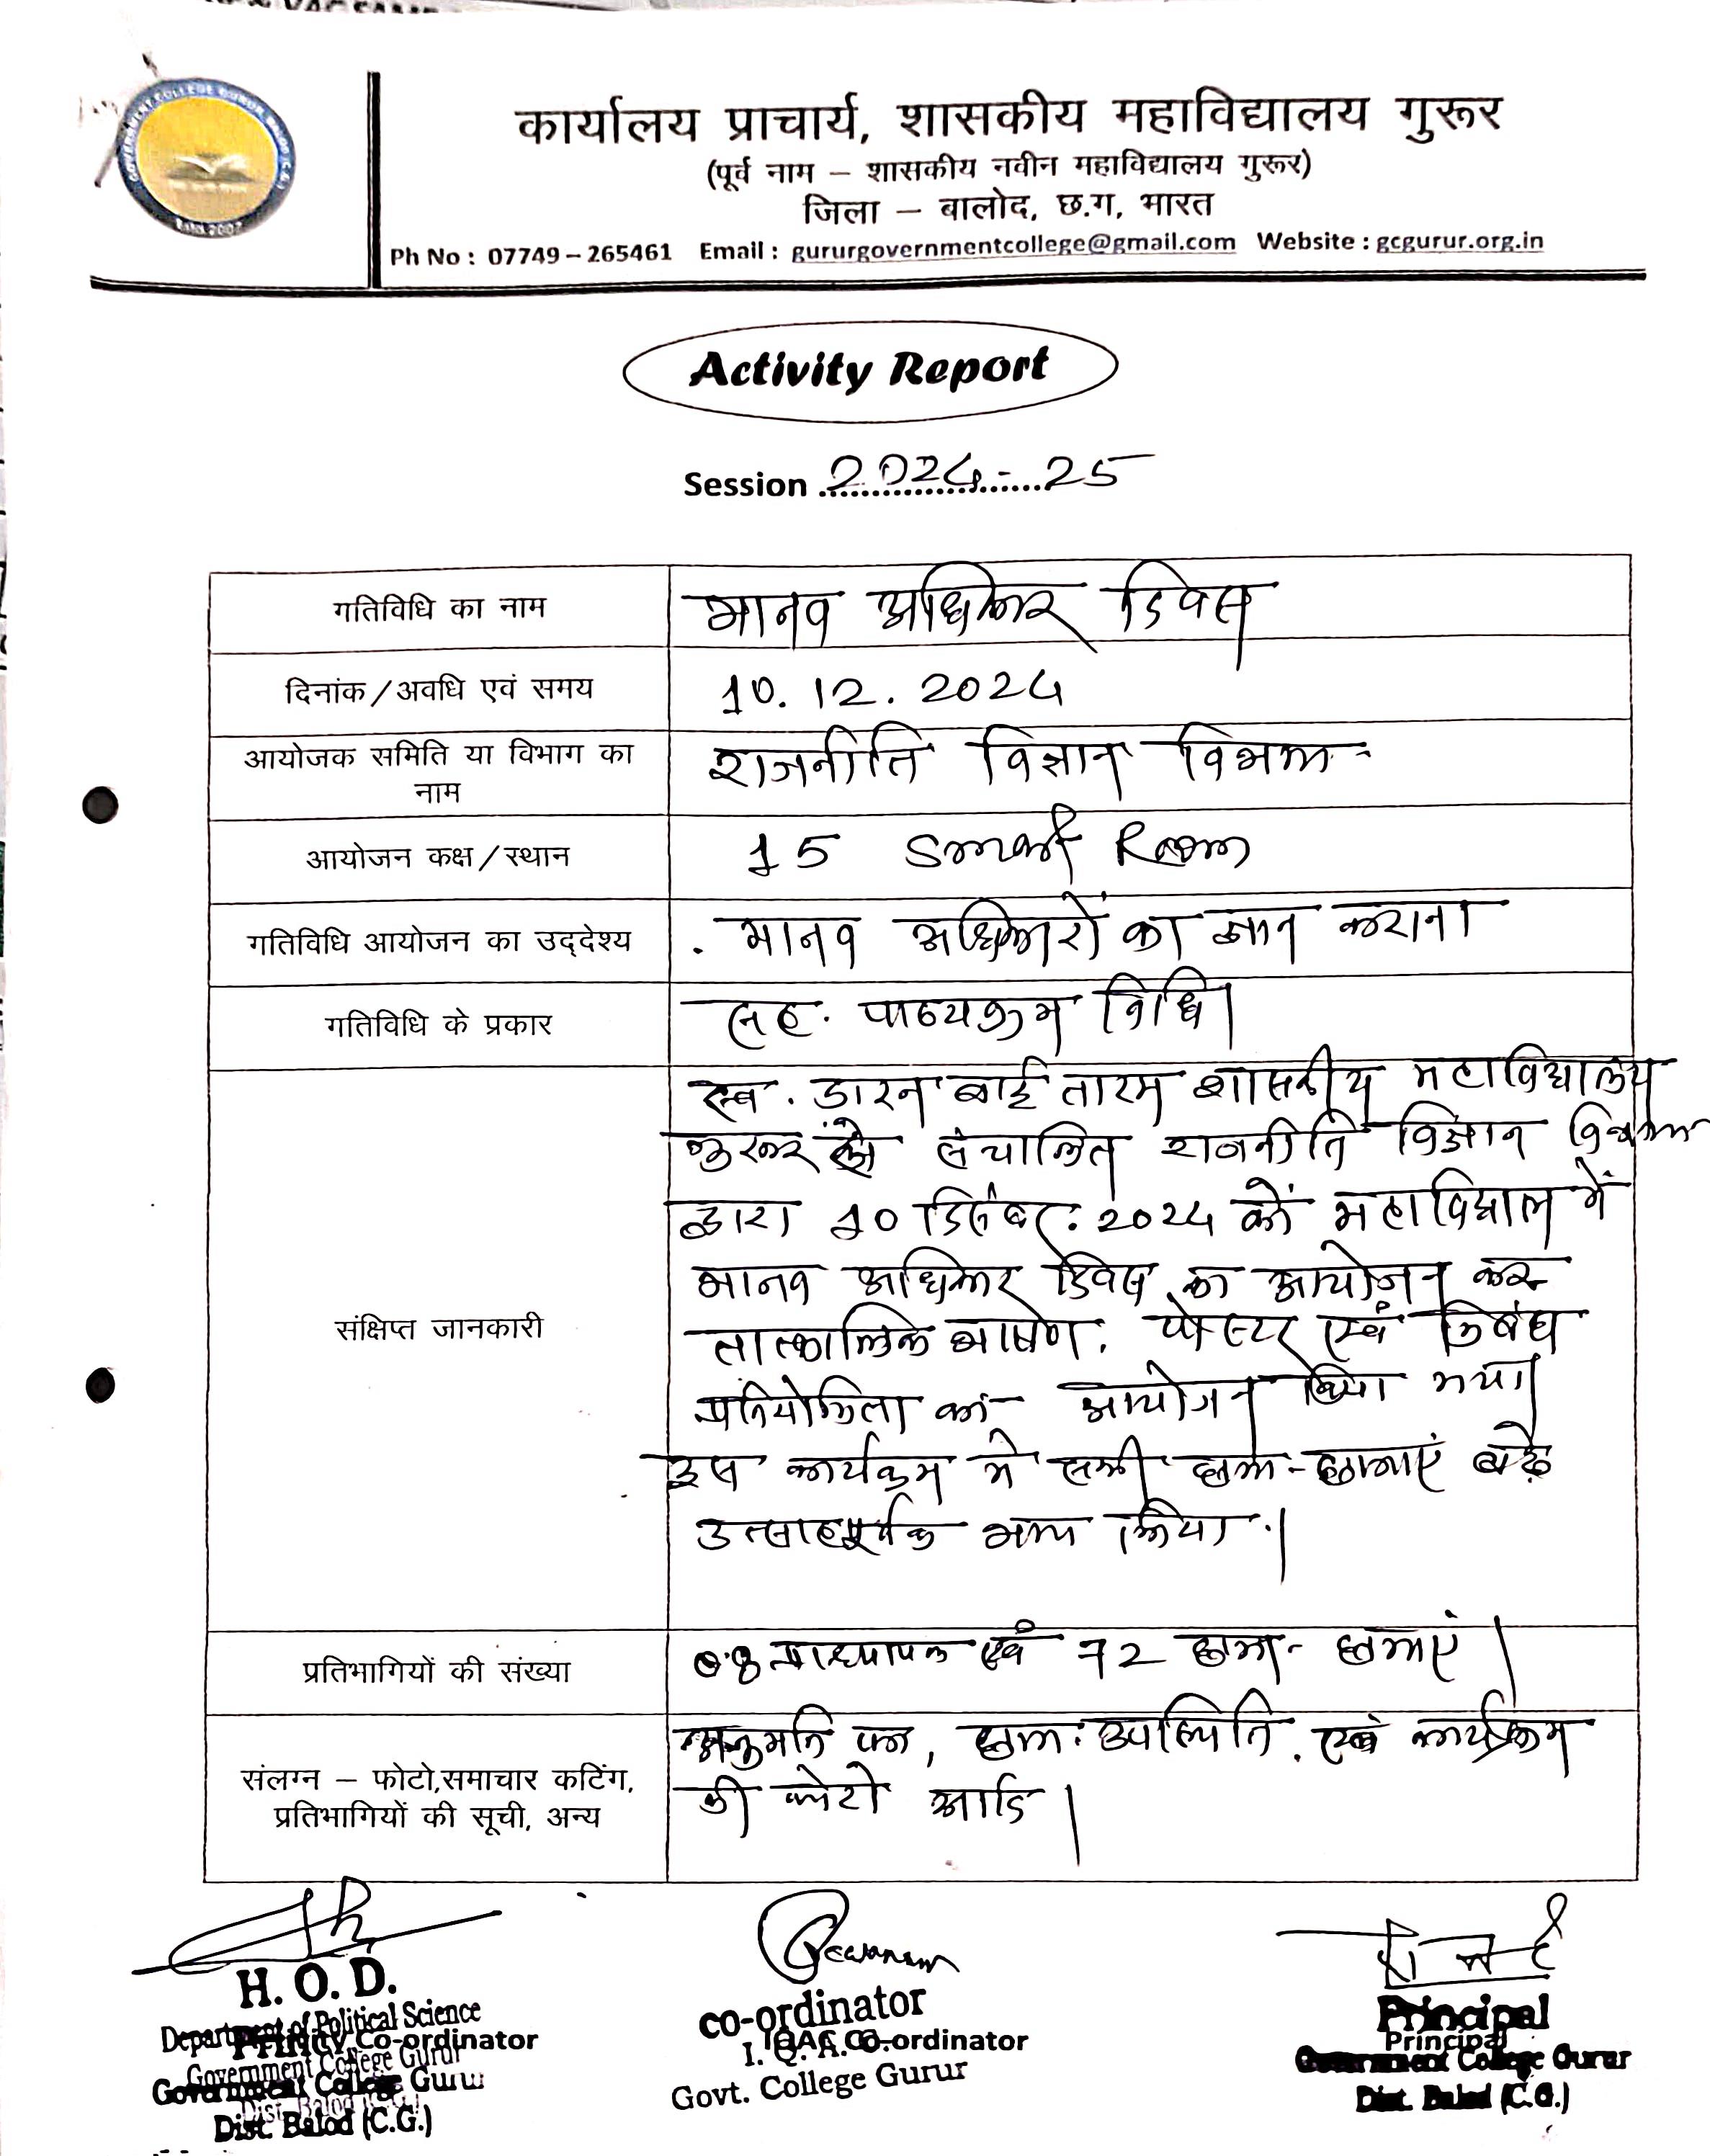 कार्यालय प्राचार्य, शासकीय महाविद्यालय गुरूर
(पूर्व नाम – शासकीय नवीन महाविद्यालय गुरूर)
जिला – बालोद, छ.ग, भारत
Ph No : 07749 – 265461 Email : gururgovernmentcollege@gmail.com Website : gcgurur.org.in
Activity Report
Session 2024-25
गतिविधि का नाम
मानव अधिकार दिवस
दिनांक/अवधि एवं समय
10.12.2024
आयोजक समिति या विभाग का
नाम
राजनीति विज्ञान विभाग
आयोजन कक्ष/स्थान
15 Smart Room
गतिविधि आयोजन का उद्देश्य
मानव अधिकारों का ज्ञान कराना
गतिविधि के प्रकार
सह. पाठ्यक्रम विधि।
संक्षिप्त जानकारी
स्व. डारन बाई तारम शासकीय महाविद्यालय
गुरूर संचालित राजनीति विज्ञान विभाग
द्वारा 10 दिसंबर. 2024 को महाविद्याल में
मानव अधिकार दिवस का आयोजन कर
तात्कालिक भाषण. पोस्टर एवं निबंध
प्रतियोगिता का आयोजन किया गया।
इस कार्यक्रम मे सभी छात्र-छात्राएं बड़े
उत्साहपूर्वक भाग किया।
प्रतिभागियों की संख्या
प्राध्यापक एवं 72 छात्र-छात्राएं।
संलग्न – फोटो,समाचार कटिंग,
प्रतिभागियों की सूची, अन्य
अनुमति पत्र, छात्र. उपस्थिति. एवं कार्यक्रम
की फोटो आदि।
H. O. D.
Department of Political Science
Co-ordinator
Government College Gurur
Government College Gurur
Dist. Balod (C.G.)
co-ordinator
IQAC Co-ordinator
I. Q. A. C.
Govt. College Gurur
Principal
Principal
Government College Gurur
Dist. Balod (C.G.)